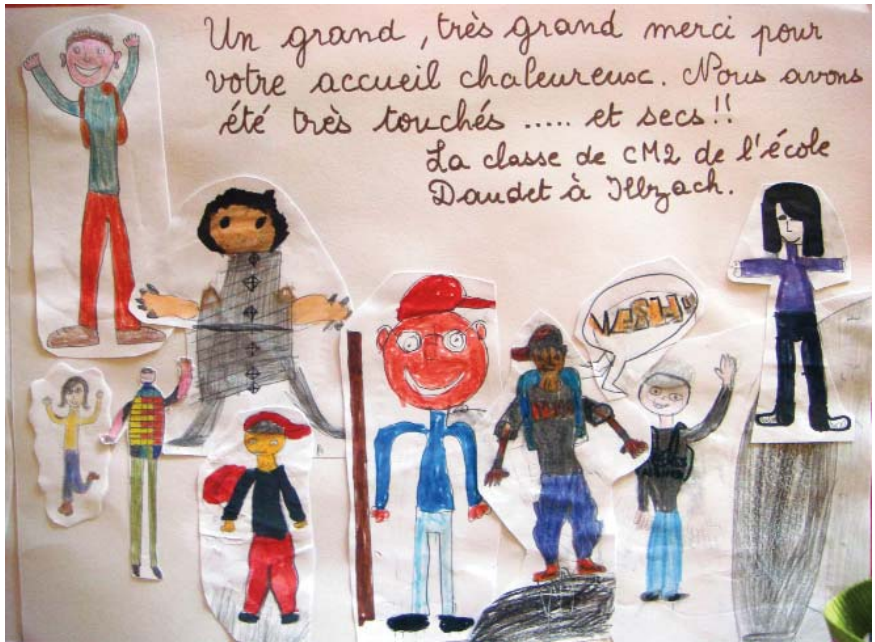 Un grand, très grand merci pour
votre accueil chaleureux. Nous avons
été très touchés ..... et secs!!
La classe de CM2 de l'école
Daudet à Illzach.